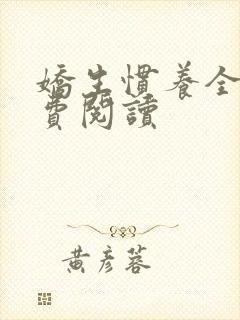 嬌生慣養全
費閱讀
黃彥蓉